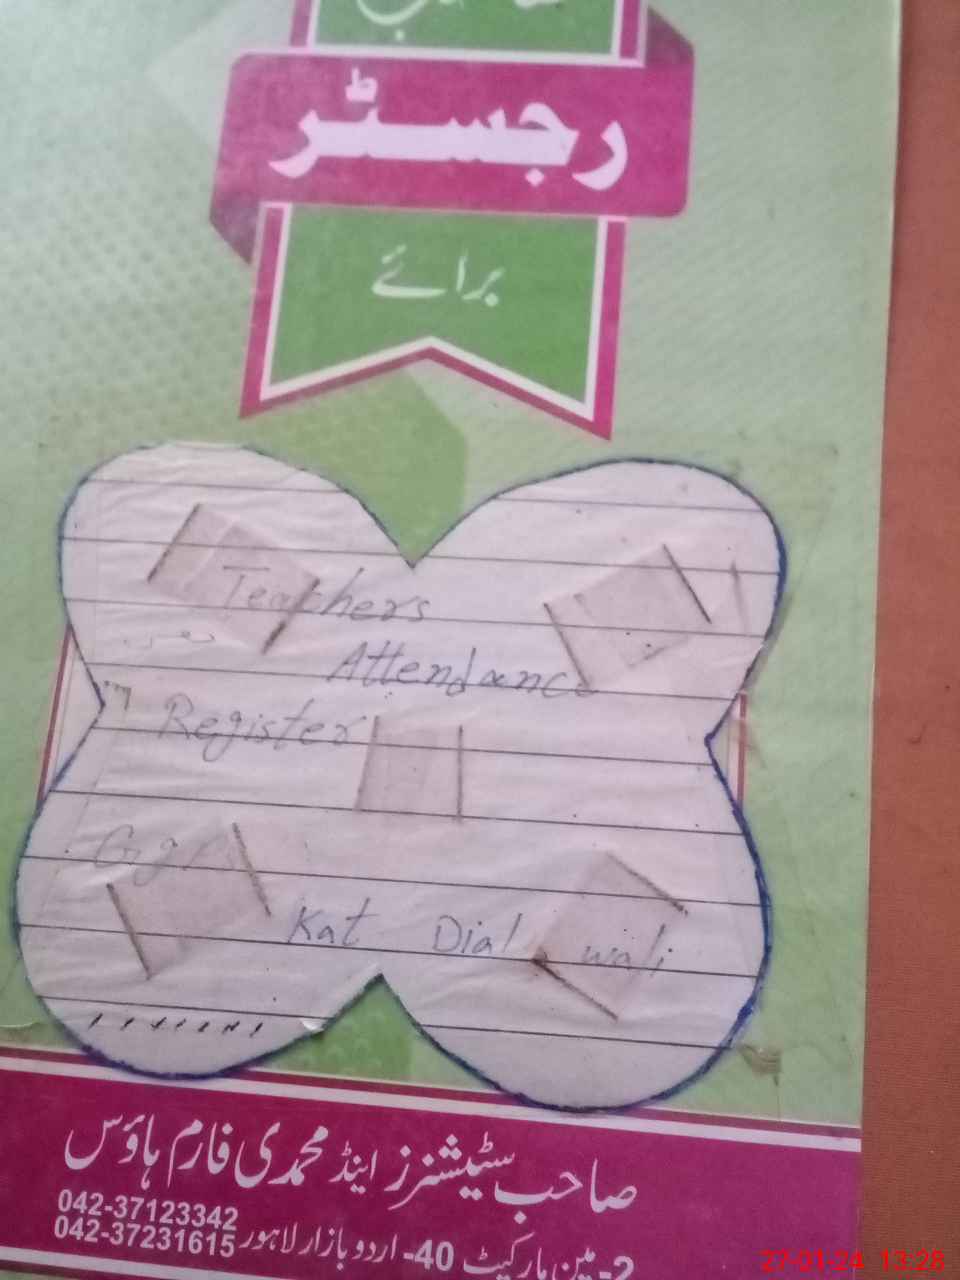 صاحب
رجسٹر
برائے
Teachers
Attendance
Register
GGPS
Kat Dial wali
صاحب سٹیشنرز اینڈ محمدی فارم ہاؤس
042-37123342
042-37231615
2-مین مارکیٹ 40-اردو بازار لاہور
27-01-24 13:28